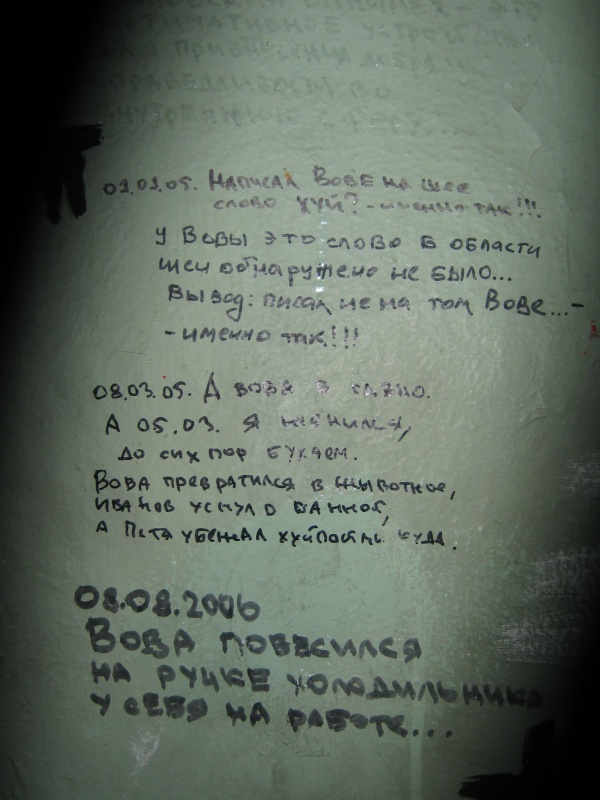 - это
устройство
для
во
внутренней сфере...
01.01.05. Написал Вове на шее
слово хуй? - именно так!!!
У Вовы это слово в области
шеи обнаружено не было...
Вывод: писал не на том Вове...-
- именно так!!!
08.03.05. А Вова в
А 05.03. я женился,
до сих пор бухаем.
Вова превратился в жывотное,
Иванов уснул в ванной,
а Петя убежал хуйпойми куда.
08.08.2006
Вова повесился
на ручке холодильника
у себя на работе...